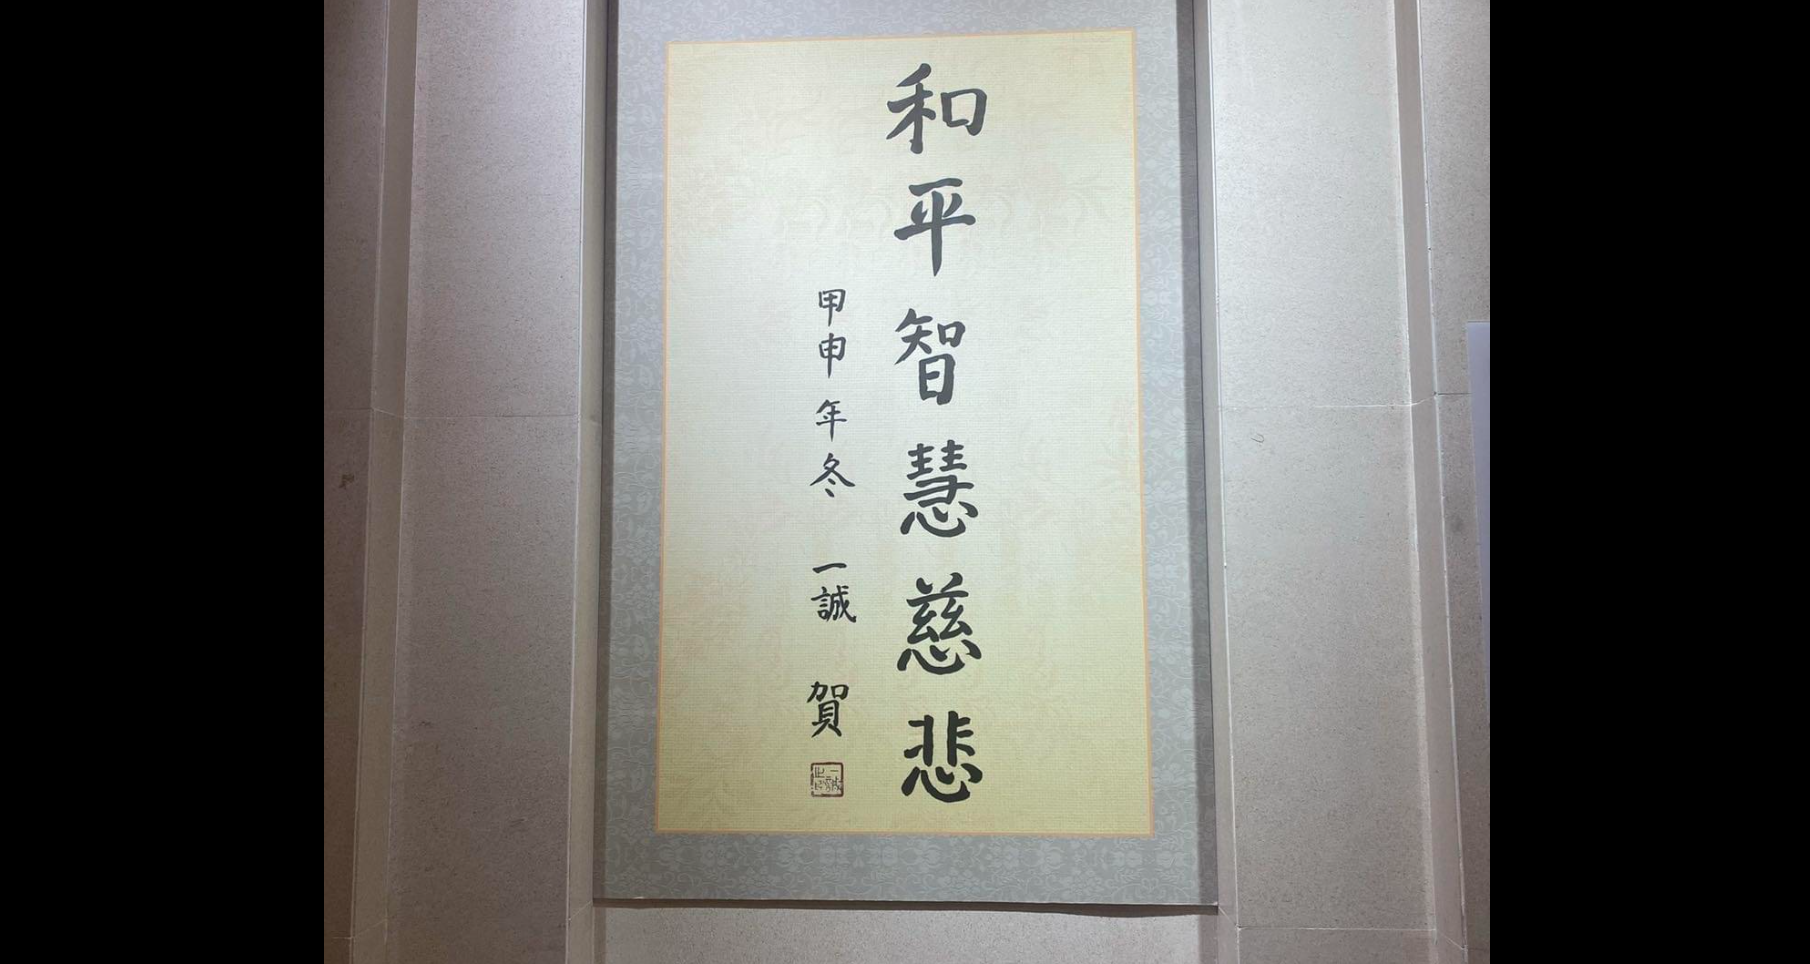 和平智慧慈悲
甲申年冬 一誠 賀